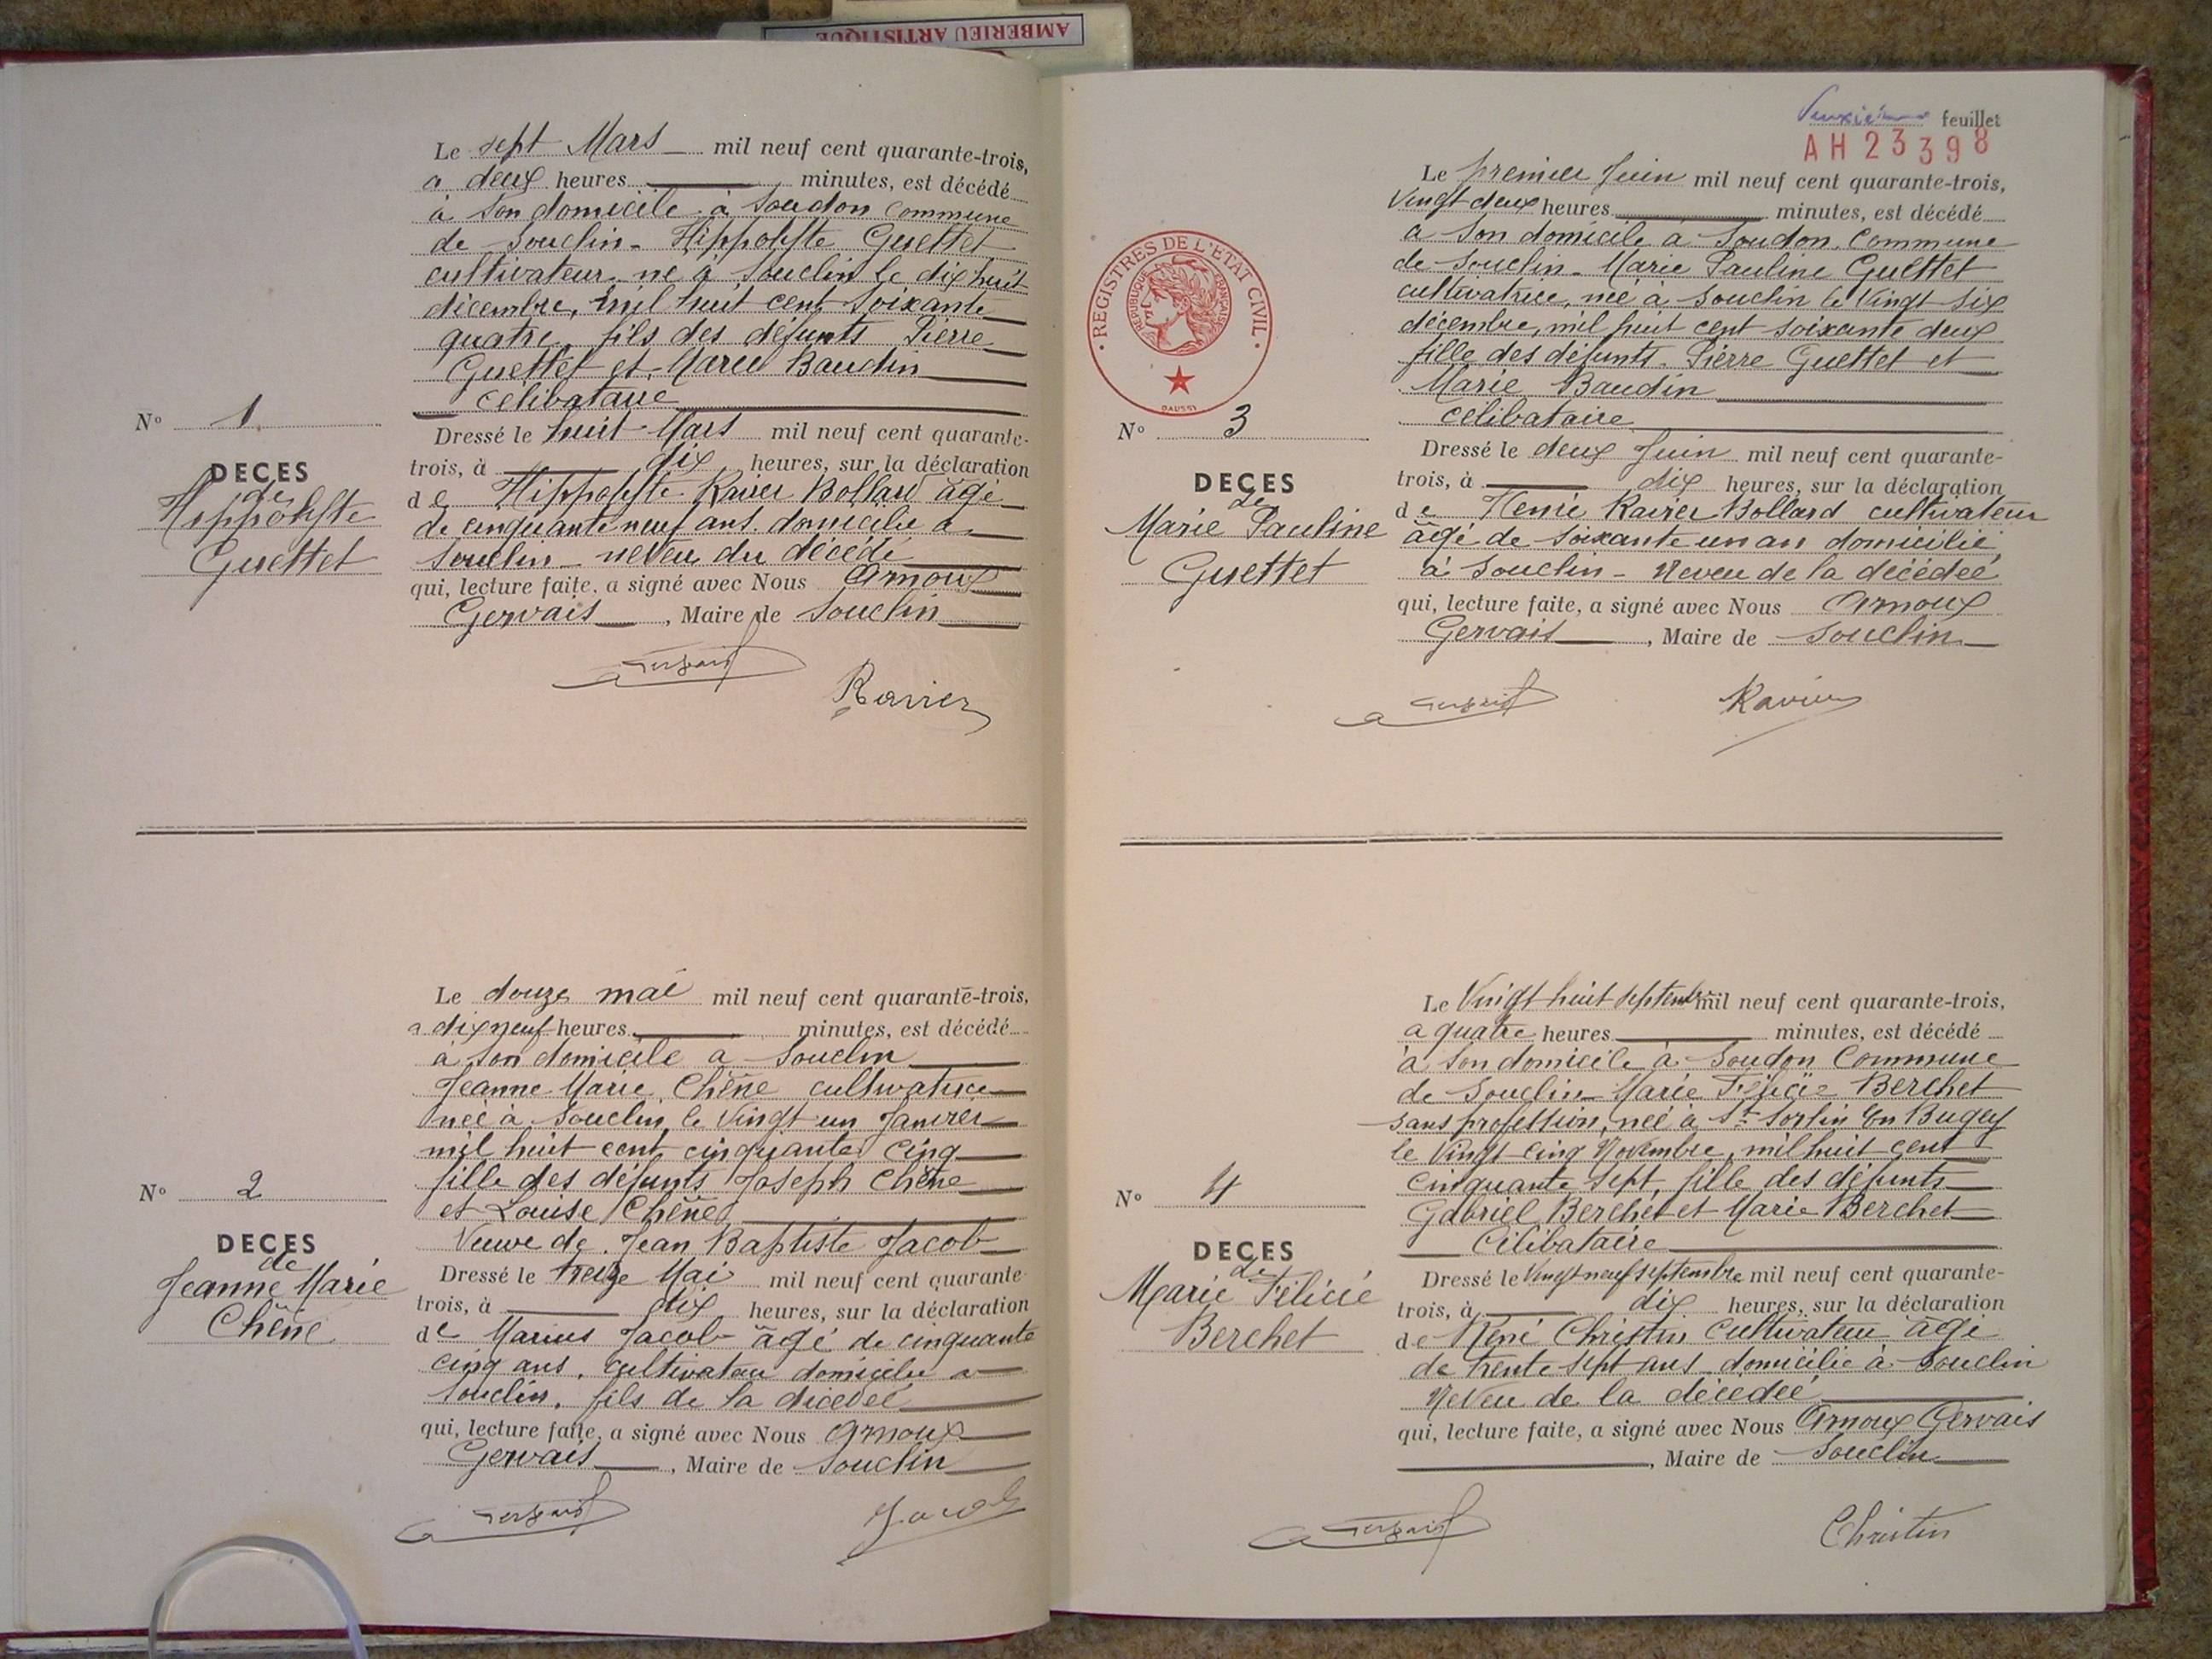 AMBERIEU ARTISTIQUE
Le sept Mars mil neuf cent quarante-trois,
a deux heures minutes, est décédé
à son domicile à Soudon commune
de Souclin - Hippolyte Guettet
cultivateur né à Souclin le dix huit
décembre, mil huit cent soixante
quatre, fils des défunts Pierre
Guettet et Marie Baudin
célibataire
Dressé le huit Mars mil neuf cent quarante-
trois, à dix heures, sur la déclaration
de Hippolyte Ravier Bollard âgé
de cinquante neuf ans domicilié à
Souclin - neveu du décédé
qui, lecture faite, a signé avec Nous Arnoux
Gervais, Maire de Souclin
Ravier
N° 1
DECES
de
Hippolyte
Guettet
Le douze mai mil neuf cent quarante-trois,
a dix neuf heures minutes, est décédé
à son domicile a Souclin
Jeanne Marie Chêne cultivatrice
née à Souclin le vingt un Janvier
mil huit cent cinquante cinq
fille des défunts Joseph Chêne
et Louise Chêne
Veuve de Jean Baptiste Jacob
Dressé le treize Mai mil neuf cent quarante
trois, à dix heures, sur la déclaration
de Marius Jacob âgé de cinquante
cinq ans, cultivateur domicilié a
Souclin, fils de la décédée
qui, lecture faite, a signé avec Nous Arnoux
Gervais, Maire de Souclin
Jacob
N° 2
DECES
de
Jeanne Marie
Chêne
Deuxième feuillet
AH 23398
Le premier Juin mil neuf cent quarante-trois,
Vingt deux heures minutes, est décédé
a son domicile à Soudon Commune
de Souclin - Marie Pauline Guettet
cultivatrice, née à Souclin le Vingt six
décembre, mil huit cent soixante deux
fille des défunts Pierre Guettet et
Marie Baudin
célibataire
Dressé le deux Juin mil neuf cent quarante-
trois, à dix heures, sur la déclaration
de Henri Ravier Bollard cultivateur
âgé de soixante un an domicilié
à Souclin - Neveu de la décédée
qui, lecture faite, a signé avec Nous Arnoux
Gervais, Maire de Souclin
Ravier
REGISTRES DE L'ETAT CIVIL
REPUBLIQUE FRANÇAISE
DAUSSY
N° 3
DECES
de
Marie Pauline
Guettet
Le Vingt huit septembre mil neuf cent quarante-trois,
a quatre heures minutes, est décédé
à son domicile à Soudon Commune
de Souclin Marie Félicie Berchet
sans profession, née à St Sorlin En Bugey
le Vingt cinq Novembre, mil huit cent
cinquante sept, fille des défunts
Gabriel Berchet et Marie Berchet
Célibataire
Dressé le Vingt neuf septembre mil neuf cent quarante-
trois, à dix heures, sur la déclaration
de René Christin Cultivateur âgé
de trente sept ans domicilié à Souclin
Neveu de la décédée
qui, lecture faite, a signé avec Nous Arnoux Gervais
, Maire de Souclin
Christin
N° 4
DECES
de
Marie Félicie
Berchet